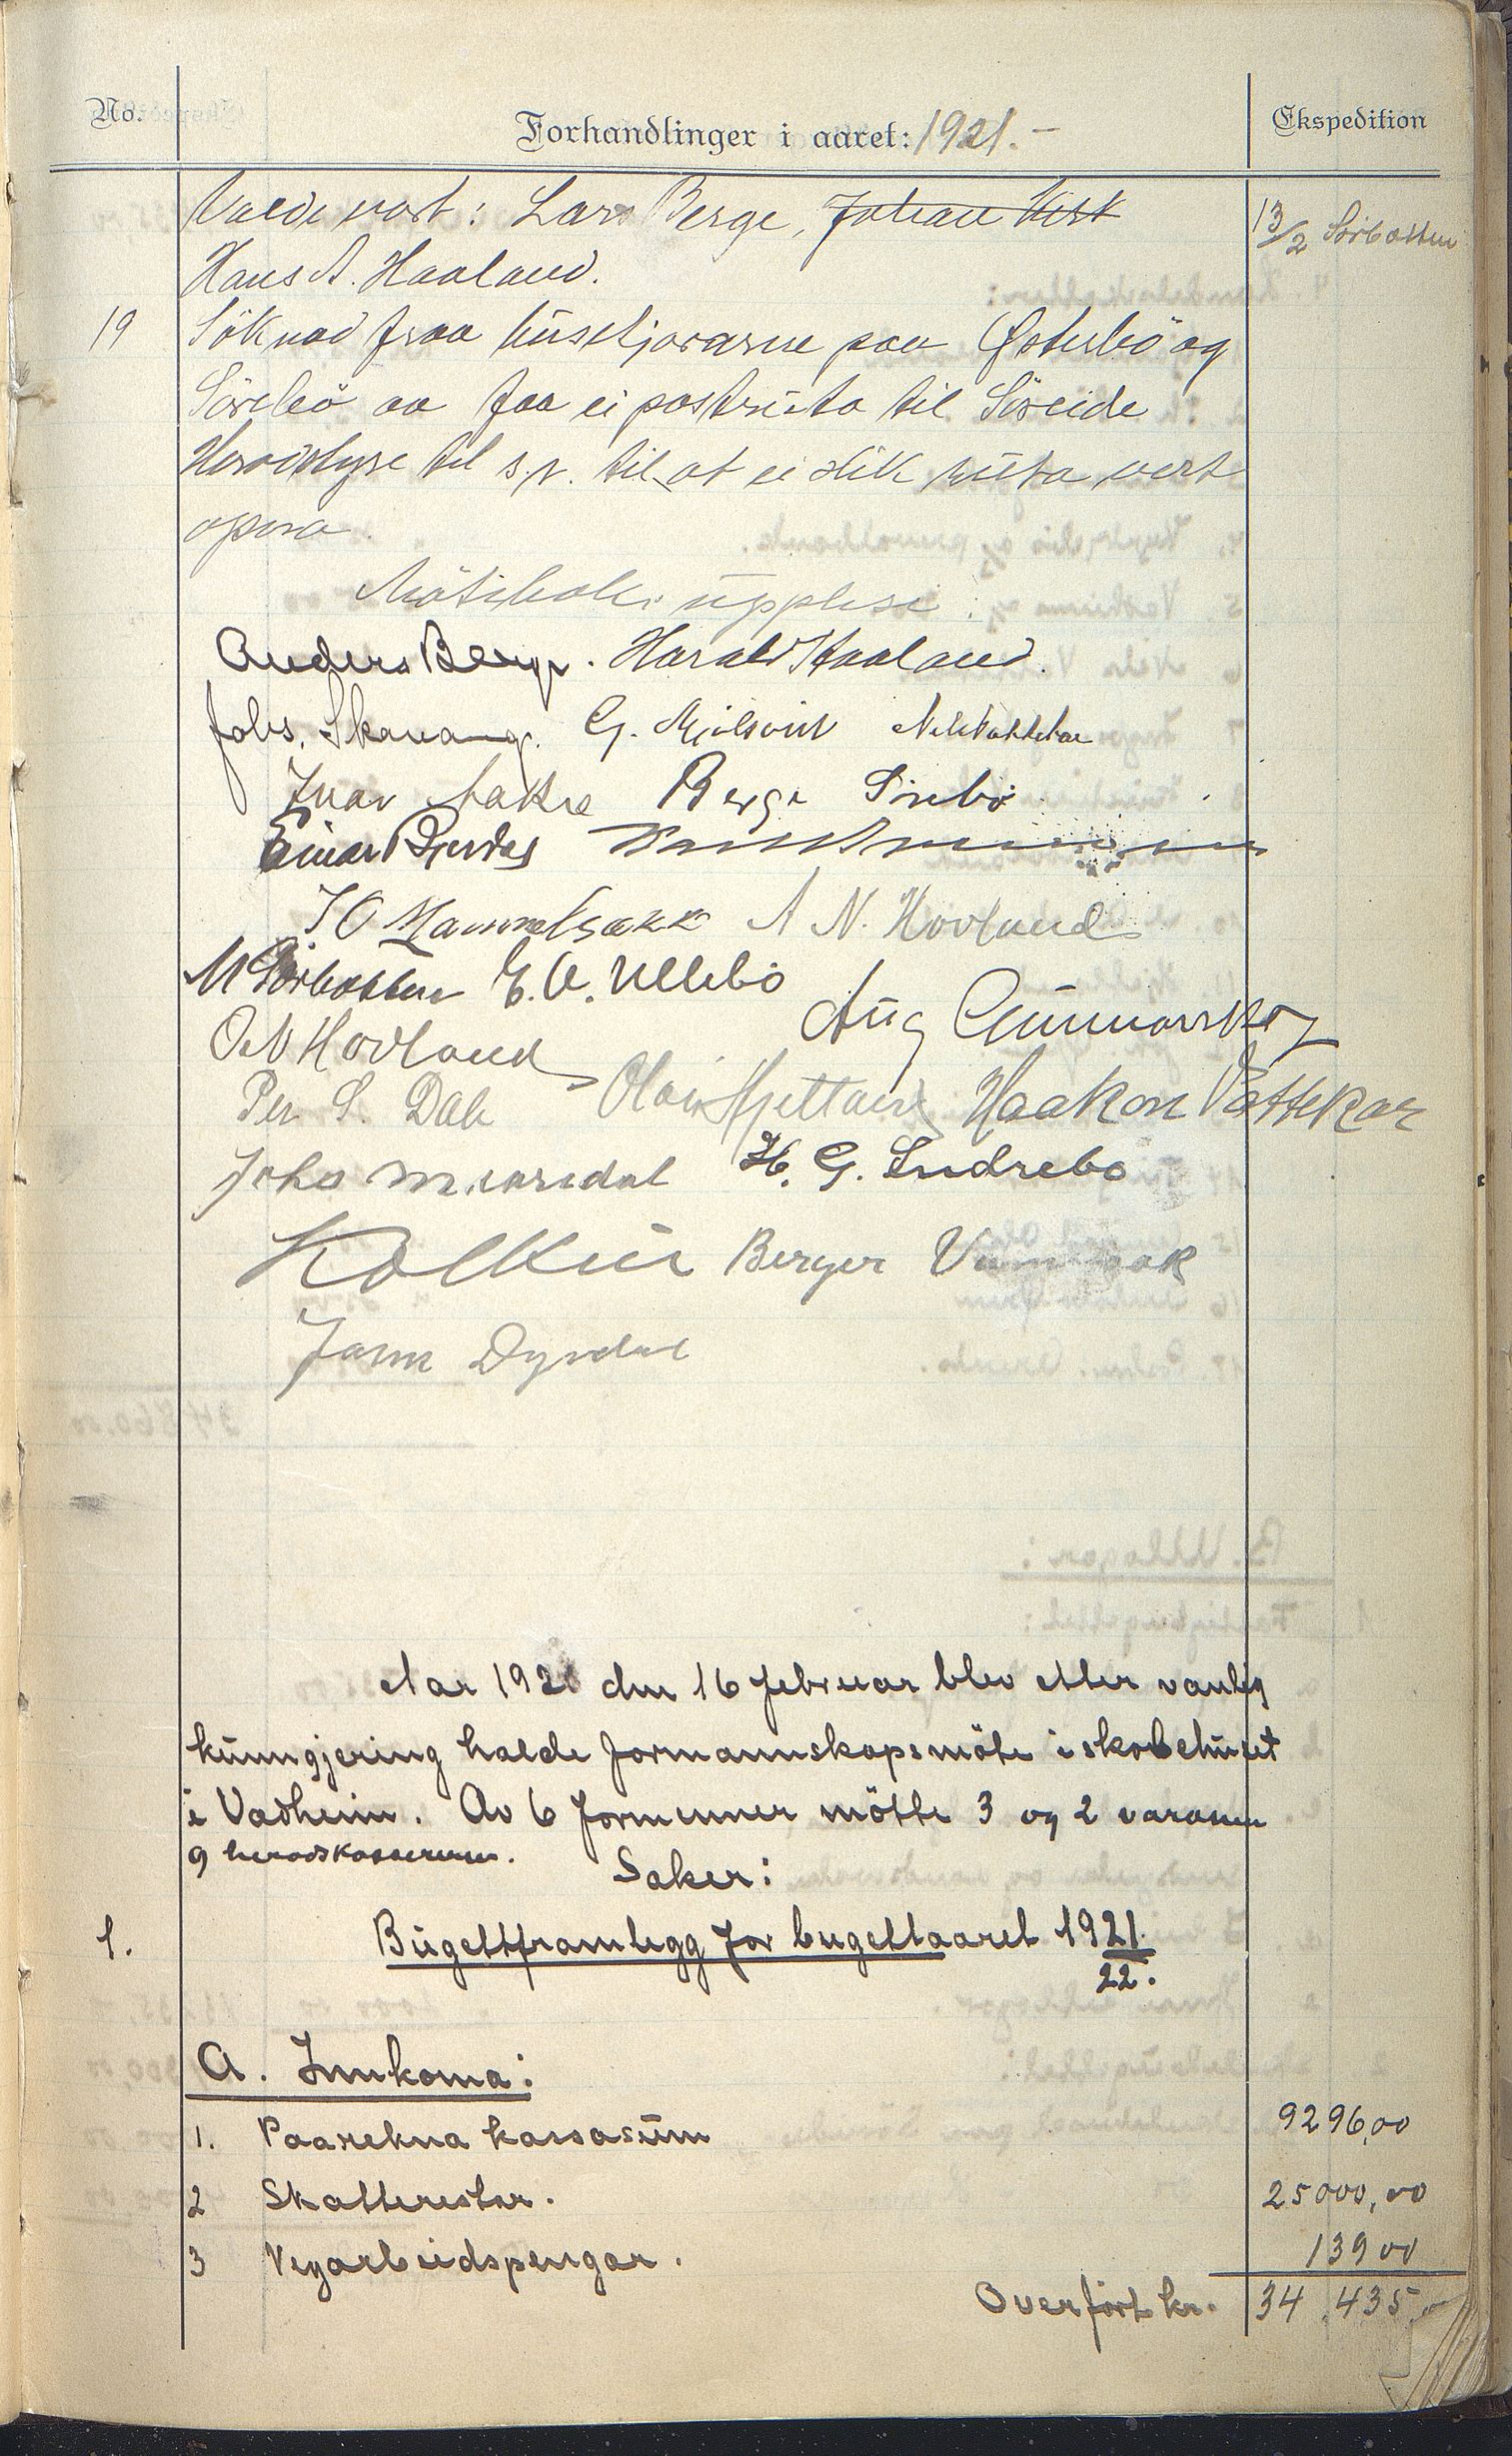 No.
Forhandlinger i aaret: 1921.-
Ekspedition
Valde vart: Lars Berge, Johan
13/2 Sörbotten
Hans A. Haaland.
19 Söknad fraa huseljorarne paa Østerbö og
Sörebö aa faa ei postruta til Söreide
Heradstyre til s.v. til at ei slik ruta vert
opna.
Möteboki upplesi:
Anders Berge. Harald Haaland.
Johs. Skavang. G. Mjölsvik N. Vattekar
Ivar Bakke Berge Sörebö
Einar
A N. Hovland
M Sörbotten E. A. Ullebö
Aug Gunnarskog
O N Hovland
Per S. Dale Olai Hjettland Haakon Vattekar
Johs H. G. Sudrebo
Berger
Dyrdal
Aar 1921 den 16 februar blev etter vanleg
kunngjering halde formannskapsmöte i skolehuset
i Vadheim. Av 6 formenner mötte 3 og 2 varamen
og heradskasseraren.
Saker:
1. Bugettframlegg for bugettaaret 1921/22.
A. Innkoma:
1. Paarekna kassasum 9296,00
2 Skatterestar. 25000,00
3 Vegarbeidspengar. 139 00
Overfört kr. 34.435,00